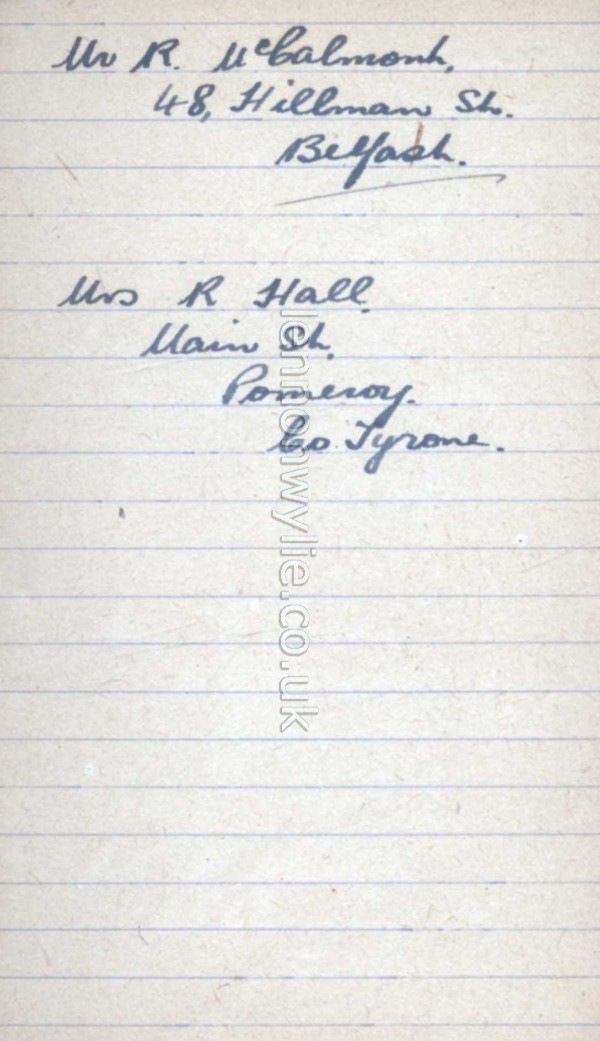 Mr R. McCalmont,
48, Hillman St.
Belfast.
Mrs R Hall.
Main St.
Pomeroy.
Co. Tyrone.
lennonwylie.co.uk